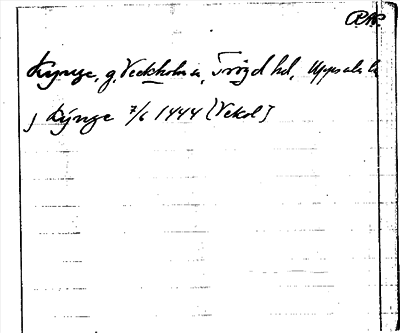 Kynge, g. Veckholm s, Trögd hd, Uppsala l
j Kynge 7/6 1444 (Vekol]